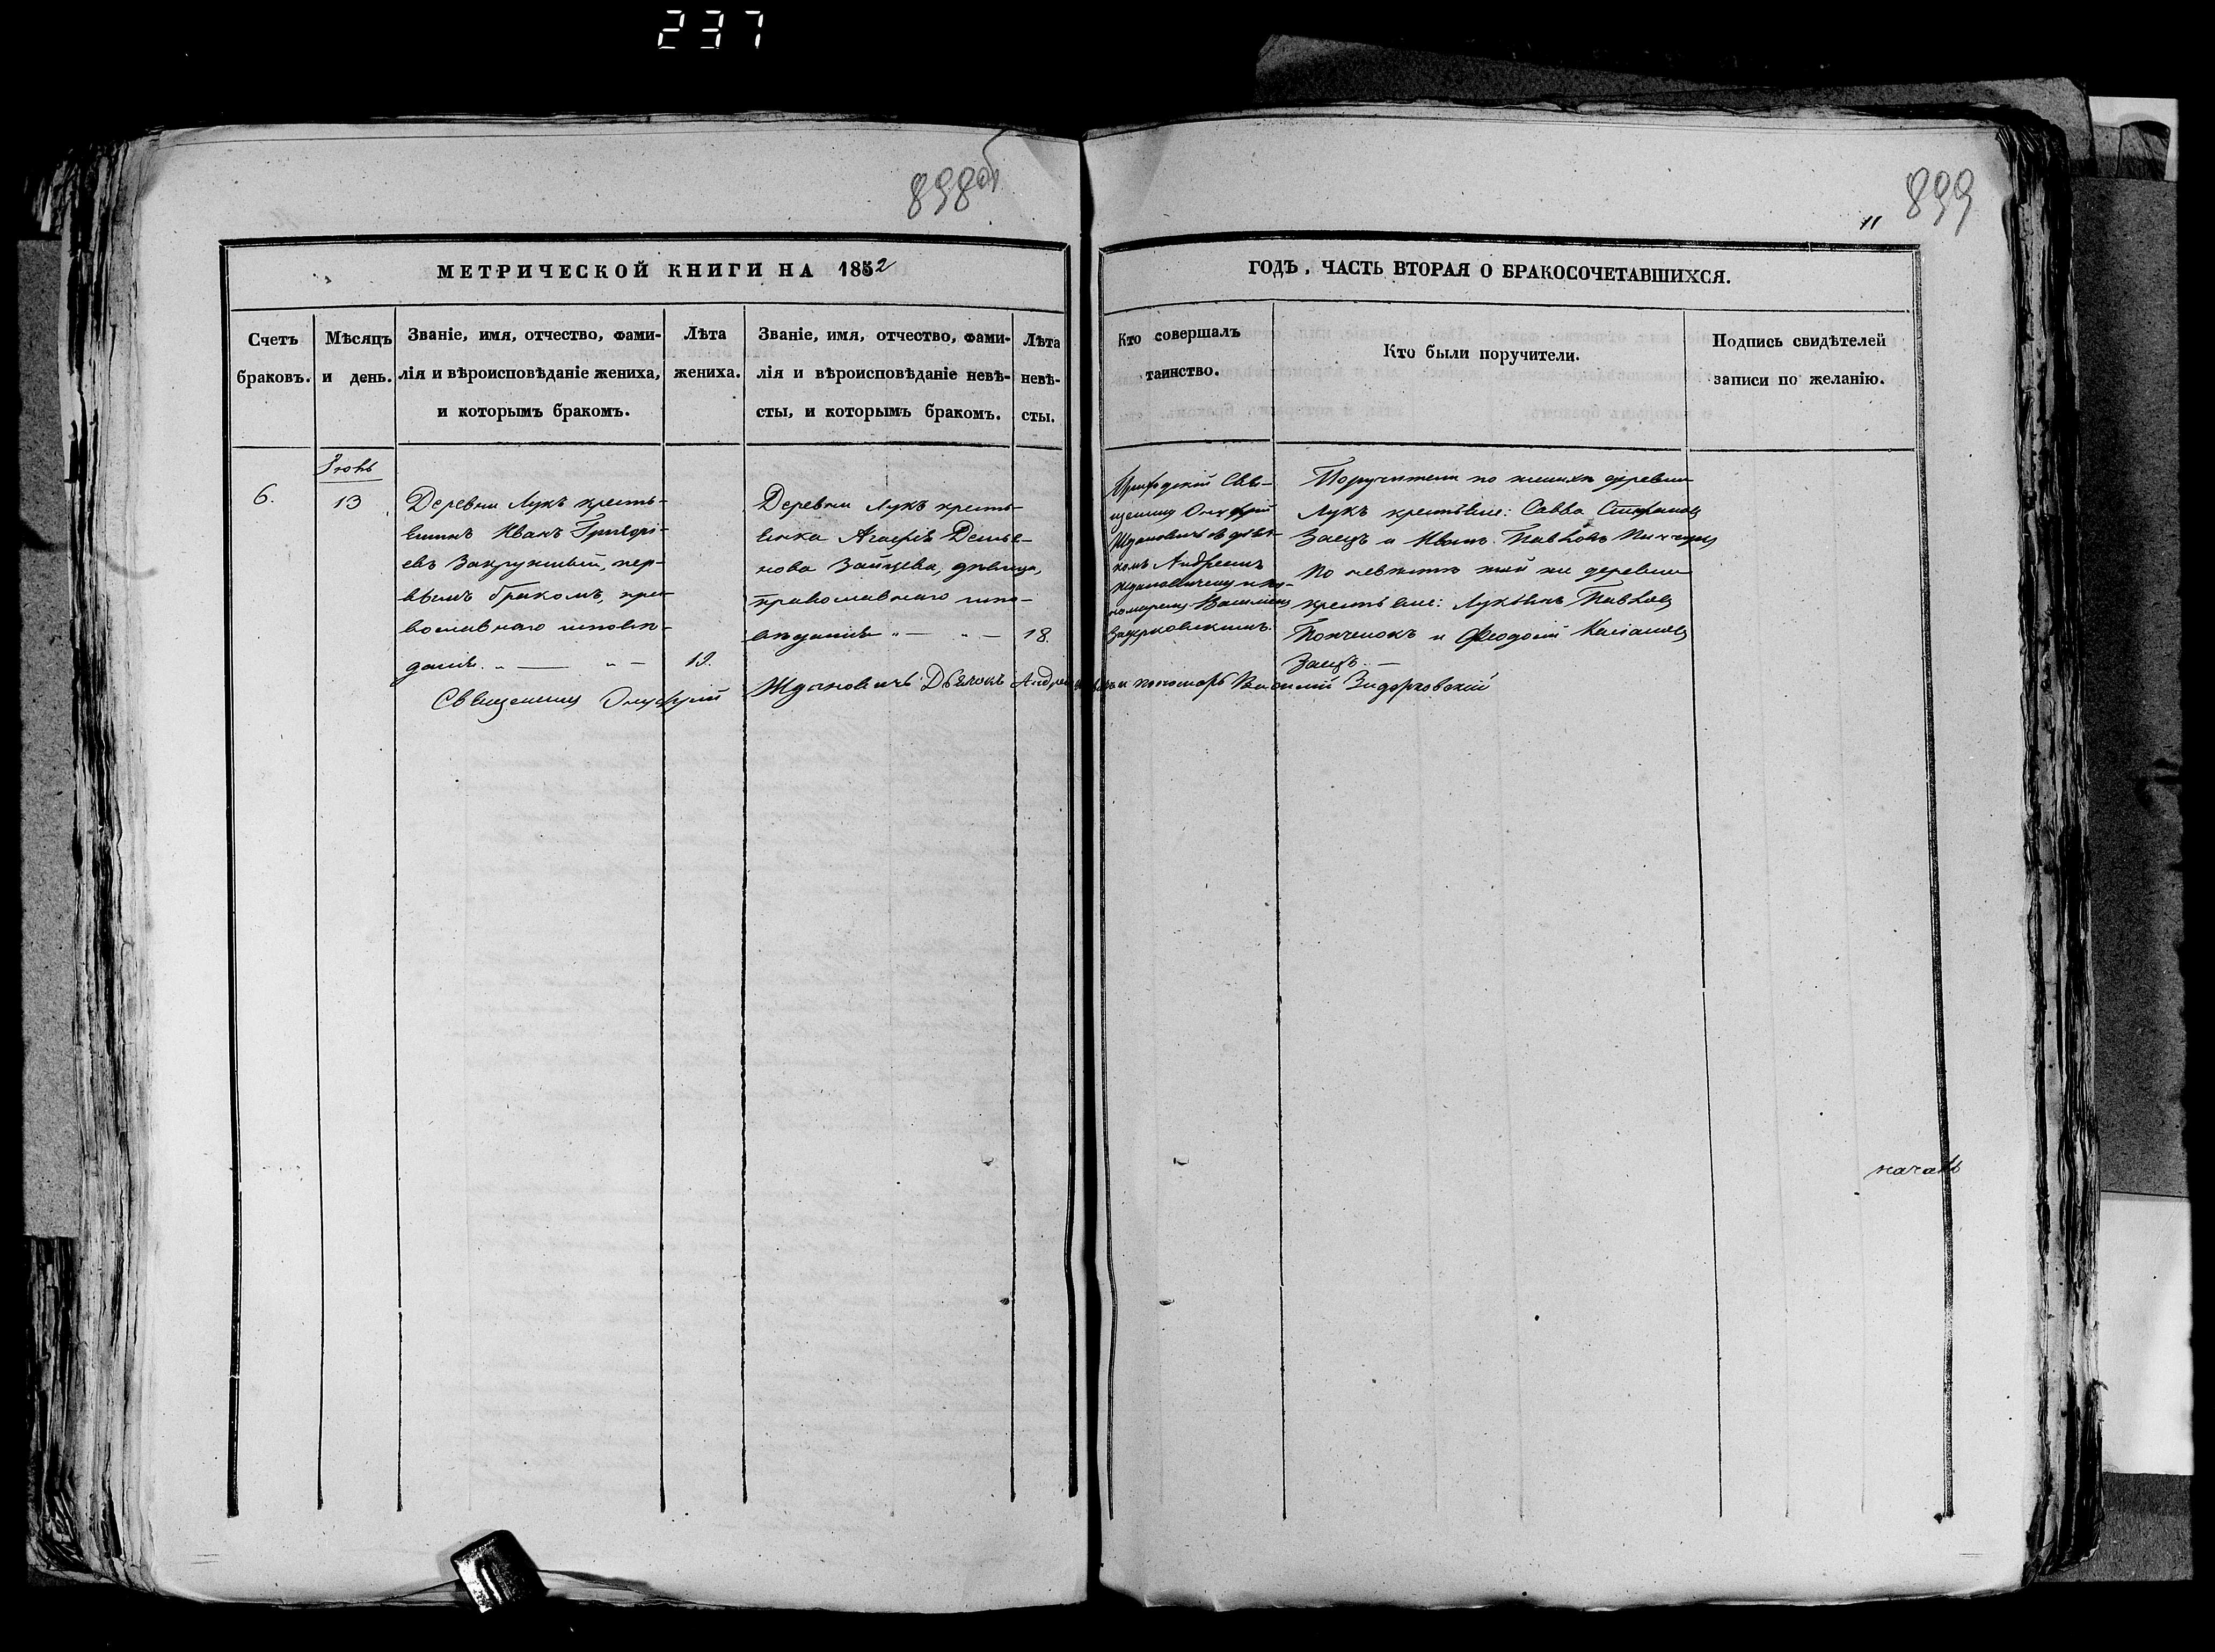 237
898об
899
11
МЕТРИЧЕСКОЙ КНИГИ НА 1852
ГОДЪ, ЧАСТЬ ВТОРАЯ О БРАКОСОЧЕТАВШИХСЯ.
Счетъ
браковъ.
Мѣсяцъ
и день.
Званіе, имя, отчество, фами-
лія и вѣроисповѣданіе жениха,
и которымъ бракомъ.
Лѣта
жениха.
Званіе, имя, отчество, фами-
лія и вѣроисповѣданіе невѣ-
сты, и которымъ бракомъ.
Лѣта
невѣ-
сты.
Кто совершалъ
таинство.
Кто были поручители.
Подпись свидѣтелей
записи по желанію.
6.
Іюнь
13
Деревни Лукъ кресть-
янинъ Иванъ Григорі-
евъ Закружный, пер-
вымъ бракомъ, пра-
вославнаго исповѣ-
данія
19.
Деревни Лукъ кресть-
янка Агафія Демья-
нова Зайцева, дѣвица,
православнаго испо-
вѣданія
18.
Приходскій Свя-
щенникъ Онуфрій
Ждановичъ съ дьяч-
комъ Андреемъ
Ждановичемъ и по-
номаремъ Василіемъ
Задерковскимъ.
Поручители по женихѣ деревни
Лукъ крестьяне: Савва Стефановъ
Заецъ и Иванъ Павловъ
По невѣстѣ той же деревни
крестьяне: Лукьянъ Павловъ
и Феодосій
Заецъ.
Священникъ Онуфрій Ждановичъ Дьячокъ Андрей пономарь Василій Задерковскій